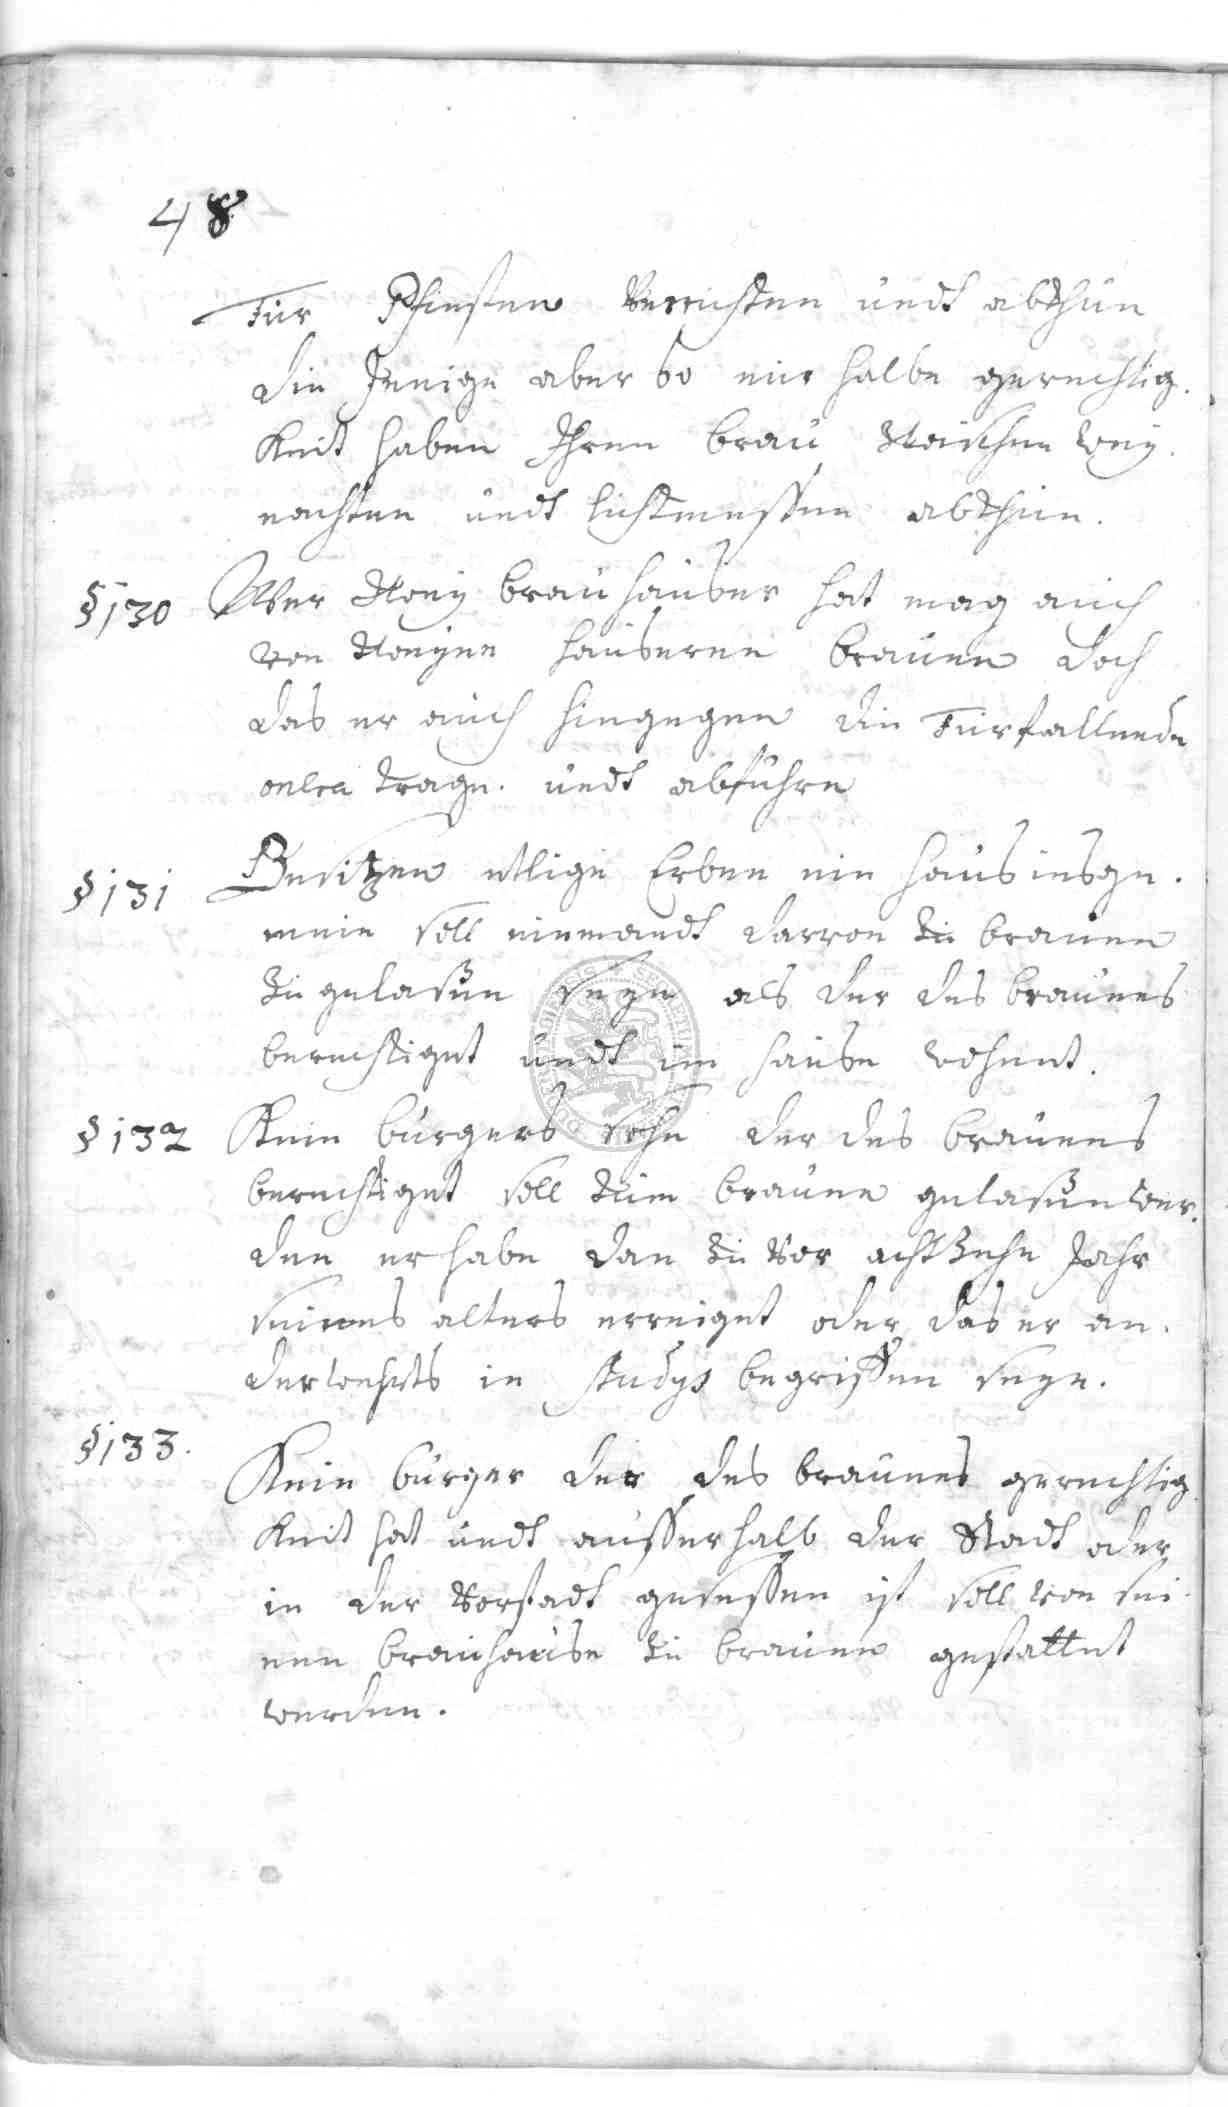 48
Für Pfinsten Verrichten undt abthun
die Jenige aber so nur halbe gerechtig.
keit haben Ihren brau Zwischen Wey.
nachten undt lichtmessen abthun.
§130 Wer Zwey brauhäuser hat mag auch
von Zweyen häuseren brauen doch
das er auch hingegen die Fürfallende
onera trage. undt abführe
§131 Besitzen etlige Erben ein haus insge.
mein soll niemandt darvon zu brauen
zugelasen seyn als der des brauens
berechtiget undt im hause wohnet.
§132 Kein burgers sohn der des brauens
berechtiget soll zum brauen gelasen wer.
den er habe dan zu Vor achtzehn Jahr
seines alters erreiget oder das er an.
derwehrts in studys begriffen seye.
§133. Kein burger der des brauens gerechtig
keit hat undt ausserhalb der Stadt oder
in der Vorstadt gesessen ist soll von sei.
nem brauhause zu brauen gestattet
werden.